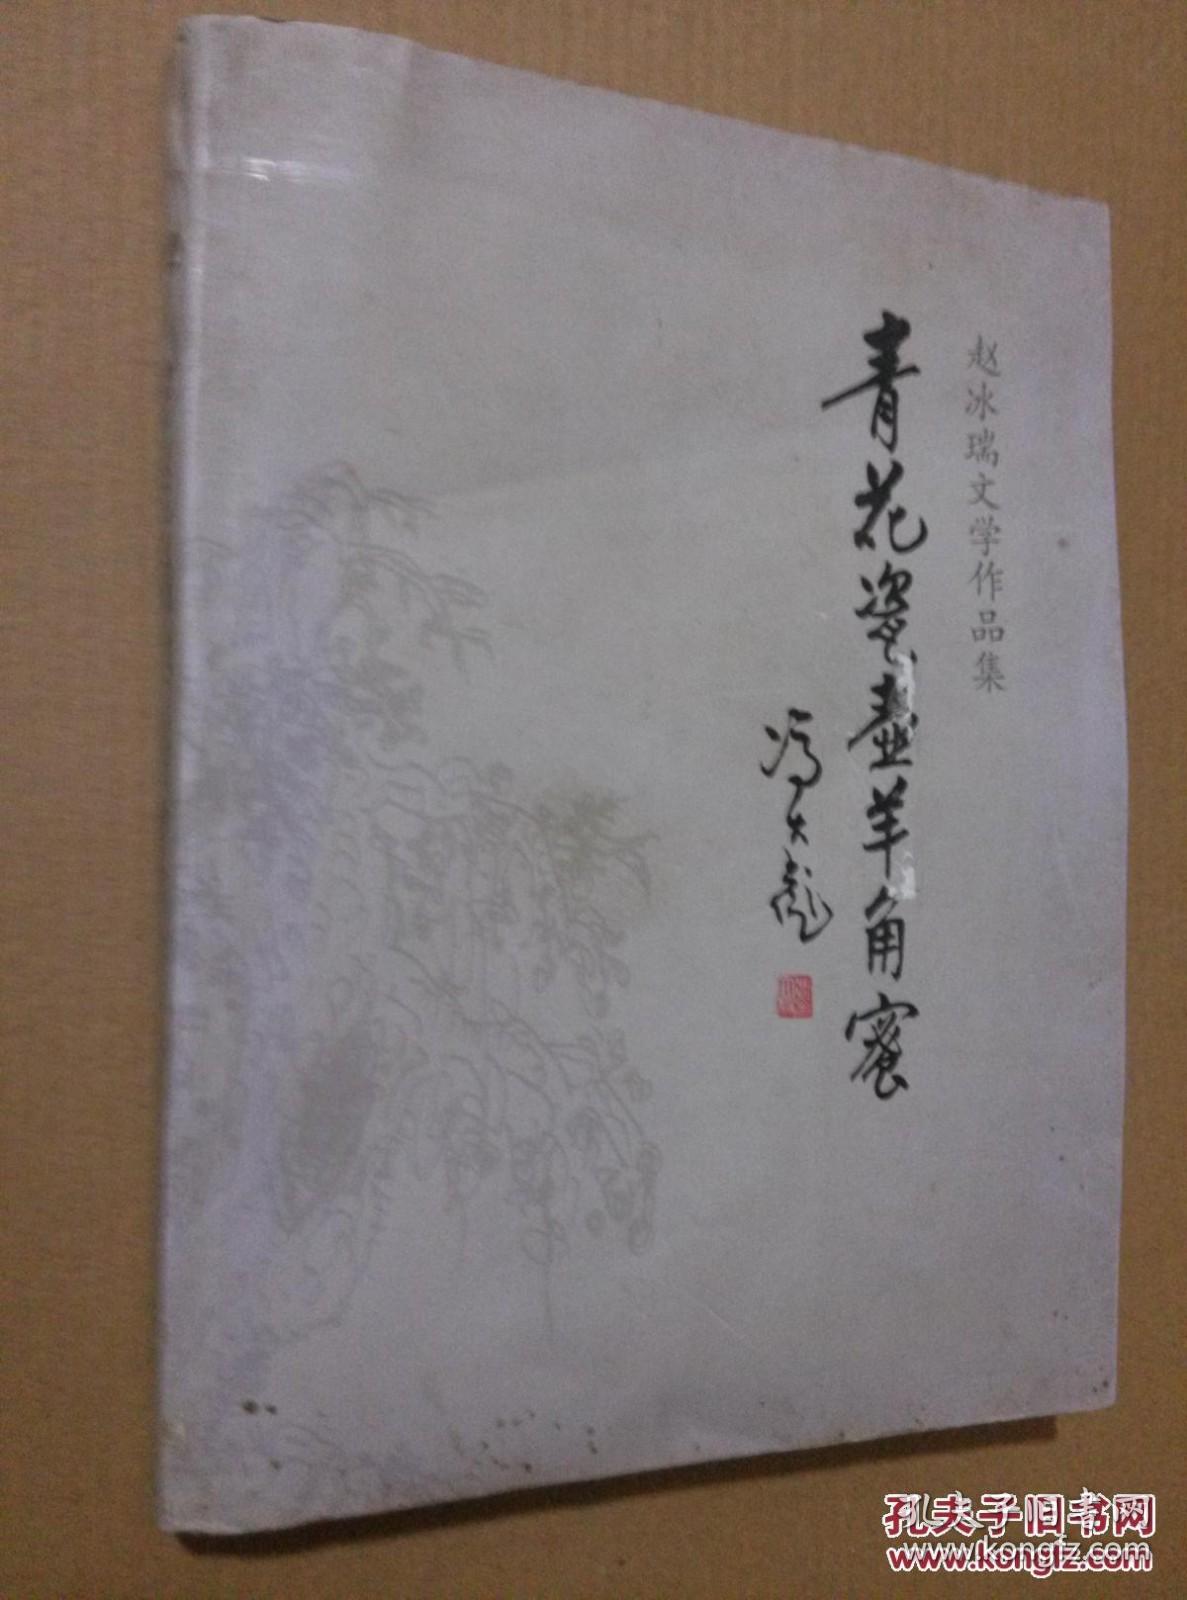 赵冰瑞文学作品集
青花瓷壶羊角蜜
冯大彪
孔夫子旧书网
www.kongfz.com